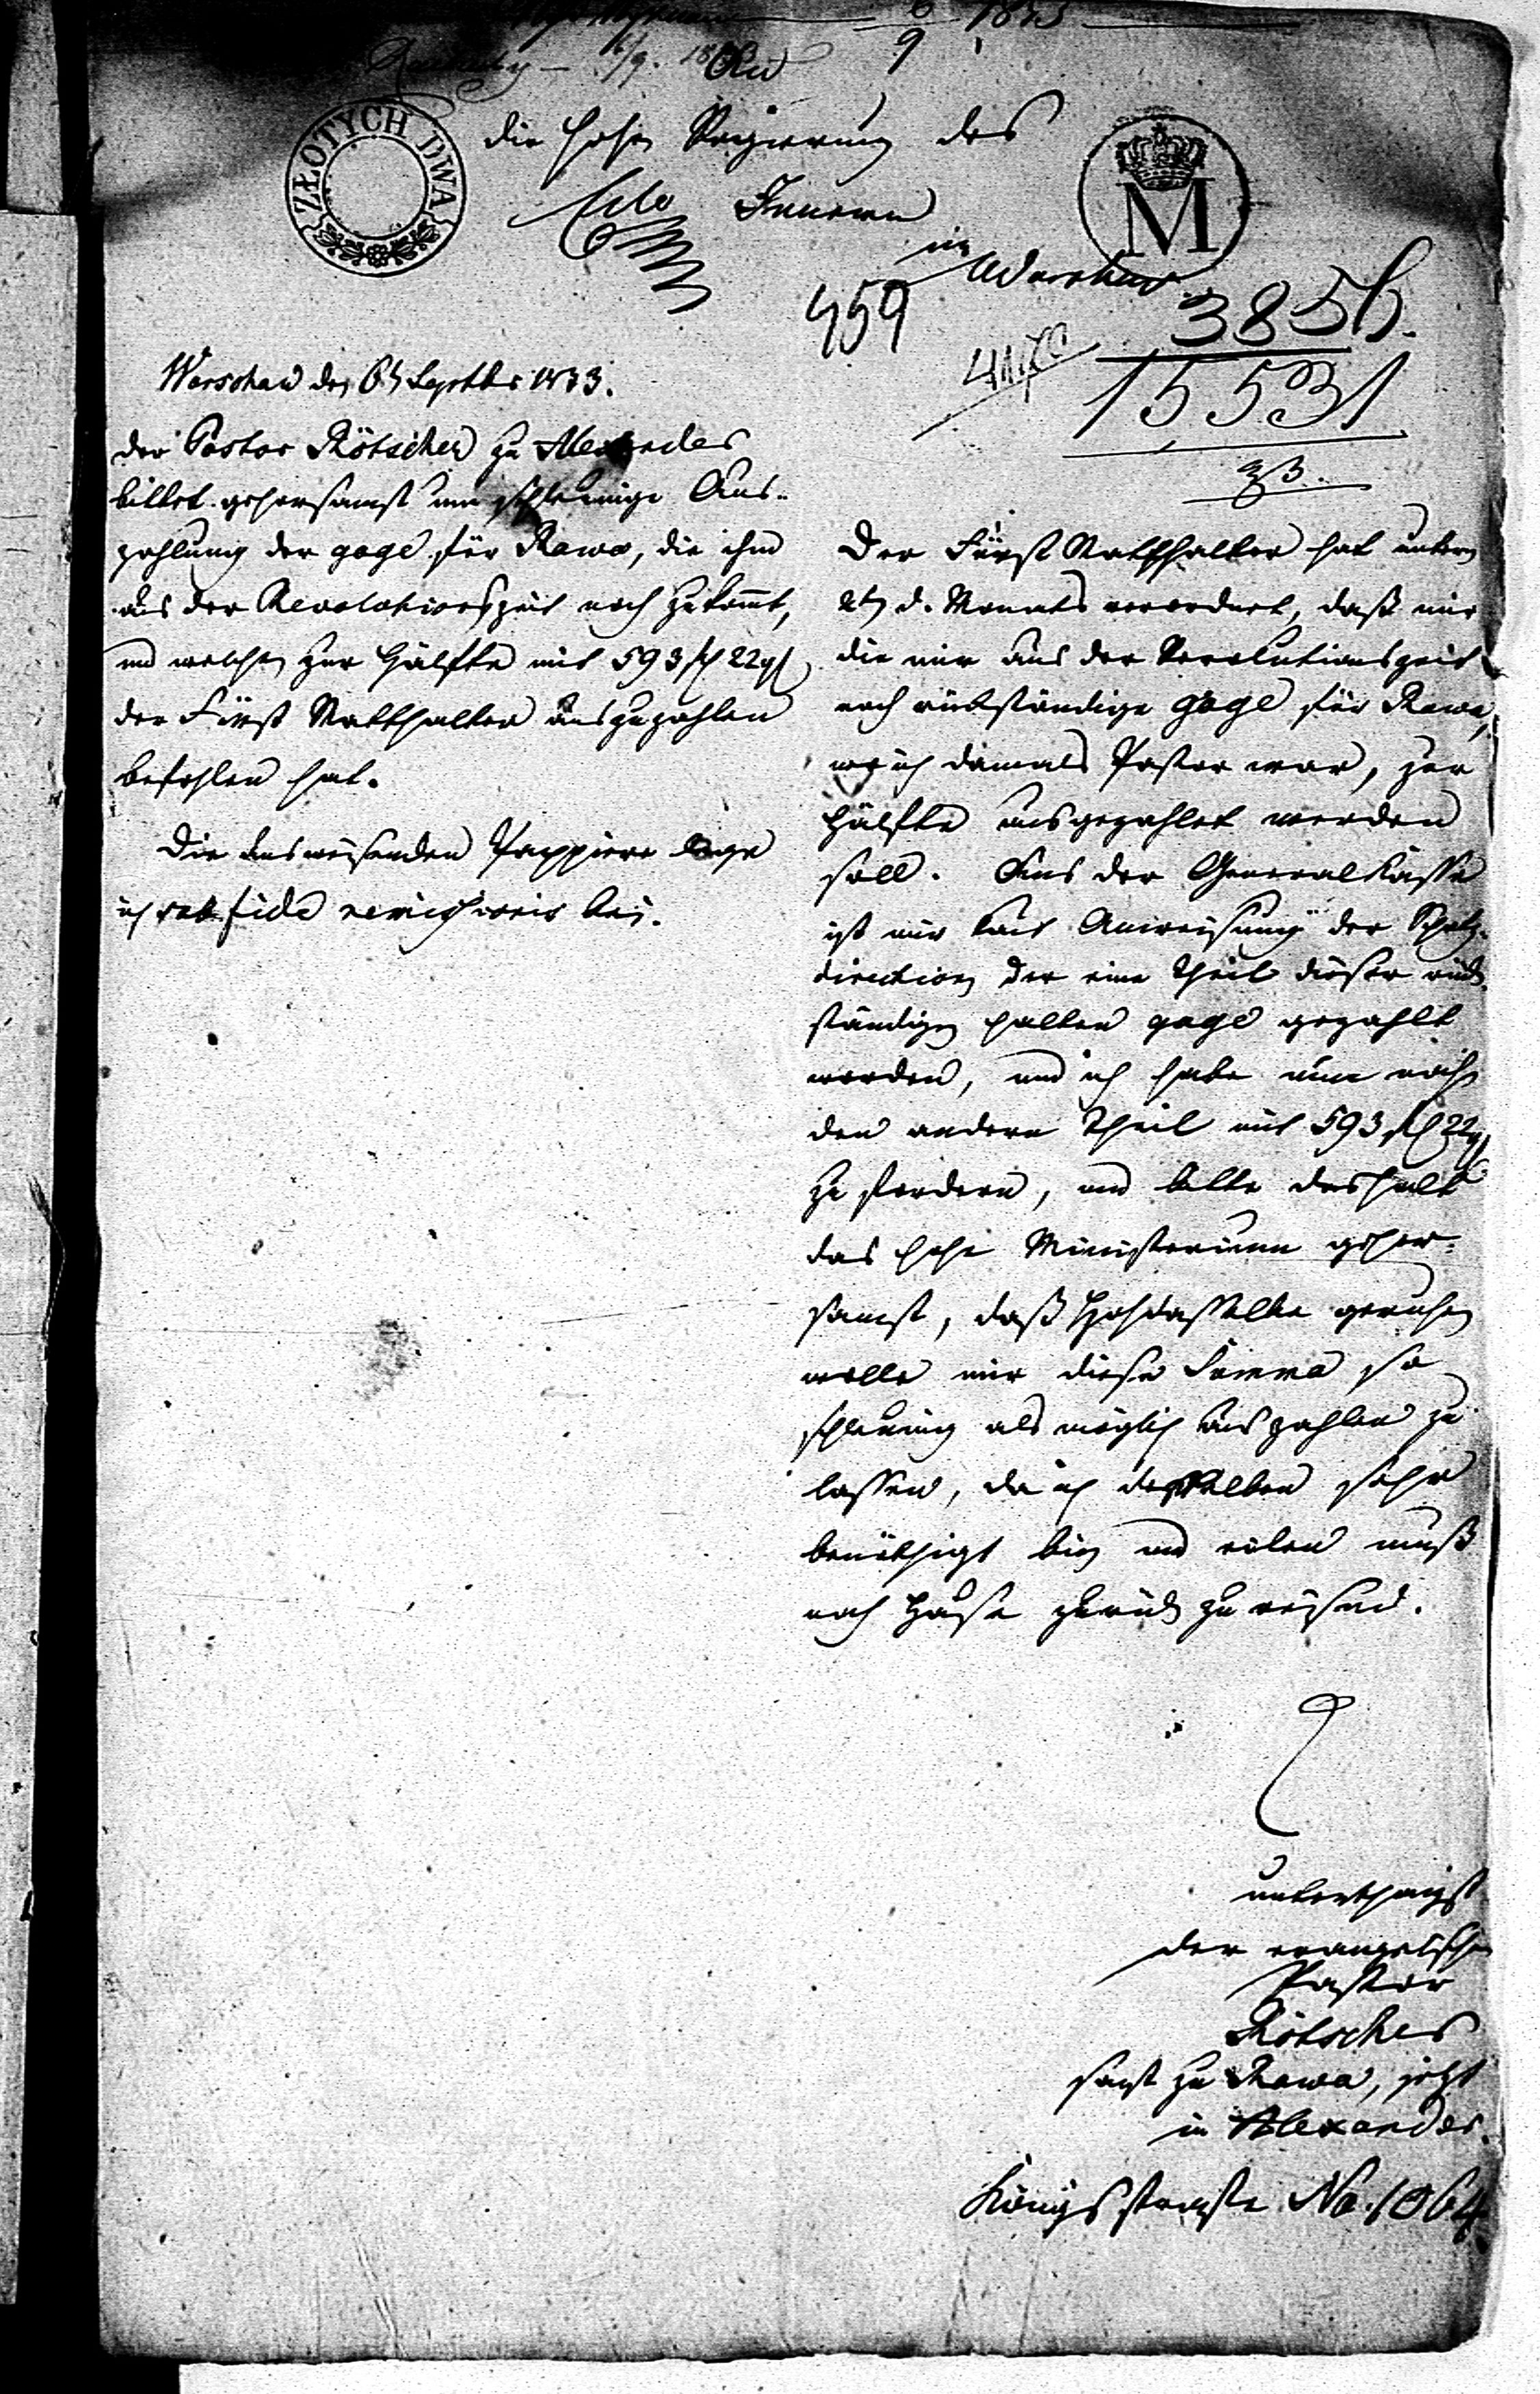 6/9 1833
6/9. 18
An
die hohe Regierung des
Innern
in Warschau
ZŁOTYCH DWA
M
459
3856.
15531
Warschau den 6t Septbr 1833.
der Pastor Rötscher zu Alexander
bittet gehorsamst um schleunige Aus-
zahlung der gage für Rawa, die ihm
aus der Revolutionszeit noch zukommt,
und welche zur Hälfte mit 593 fl 22 gl
der Fürst Statthalter auszuzahlen
befohlen hat.
Die ausweisenden Pappiere lege
ich sub fide bei.
Der Fürst Statthalter hat unterm
2t d. Monats verordnet, daß mir
die mir aus der Revolutionszeit
noch rückständige gage für Rawa,
wo ich damals Pastor war, zur
Hälfte ausgezahlet werden
soll. Aus der General Kasse
ist mir laut Anweisung der Schatz-
direction der eine Theil dieser rück-
ständigen halben gage gezahlt
worden, und ich habe nun noch
den andern Theil mit 593 fl 22 gl
zu fordern, und bitte deshalb
das hohe Ministerium gehor-
samst, daß Hochdasselbe geruhen
wolle mir diese Summa so
schleunig als möglich auszahlen zu
lassen, da ich derselben sehr
benöthigt bin und eilen muß
nach Hause zurück zu reisen.
unterthänigst
der evangelische
Pastor
Rötscher
sonst zu Rawa, jetzt
in Alexander.
Königsstraße No. 1064